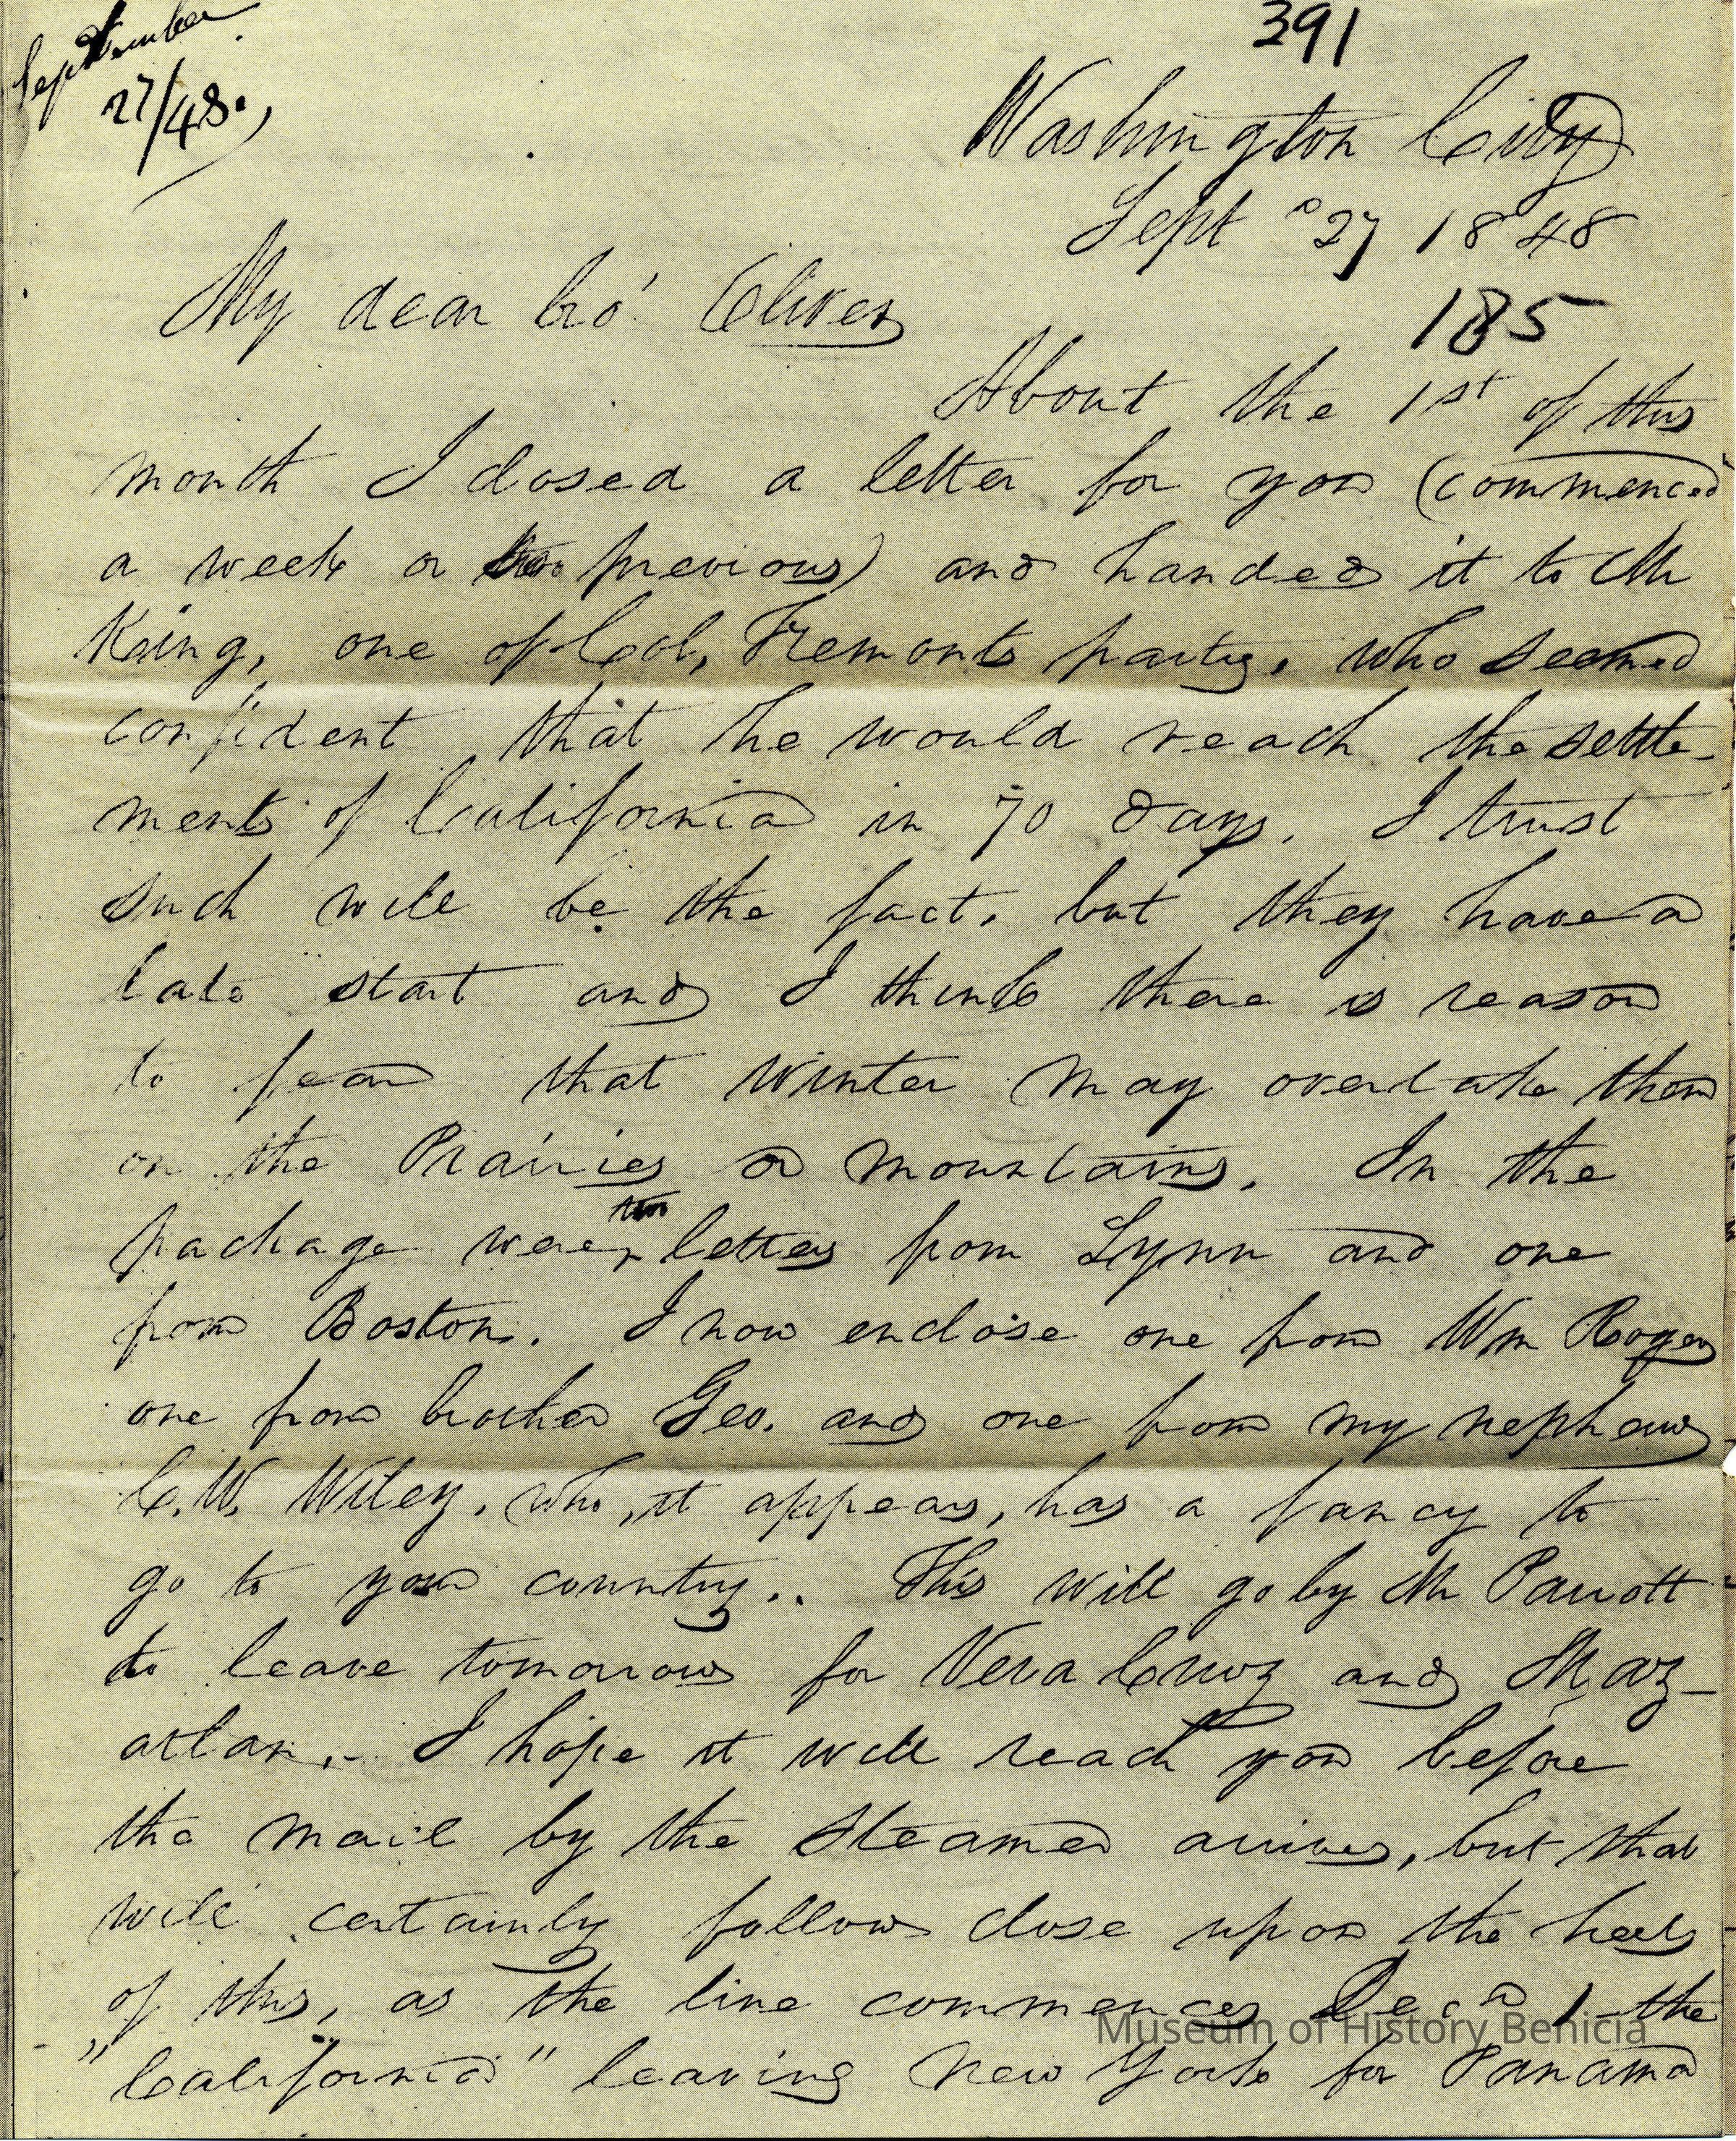 September
27/48.
391
Washington City
Sept 27 1848
185
My dear bro' Oliver
About the 1st of this
month I closed a letter for you (commenced
a week or two previous) and handed it to Mr
King, one of Col, Fremonts party, who seemed
confident that he would reach the settle-
ments of California in 70 days. I trust
such will be the fact, but they have a
late start and I think there is reason
to fear that winter may overtake them
on the Prairies or mountains. In the
two
package were letters from Lynn and one
from Boston. I now enclose one from Wm Roger
one from brother Geo. and one from my nephew
C. W. Wiley, who, it appears, has a fancy to
go to your country.. This will go by Mr Parrott
to leave tomorrow for Vera Cruz and Maz-
atlan. - I hope it will reach you before
the mail by the steamer arrives, but that
will certainly follow close upon the heels
of this, as the line commences Decr 1 - the
"California" leaving New York for Panama
Museum of History Benicia